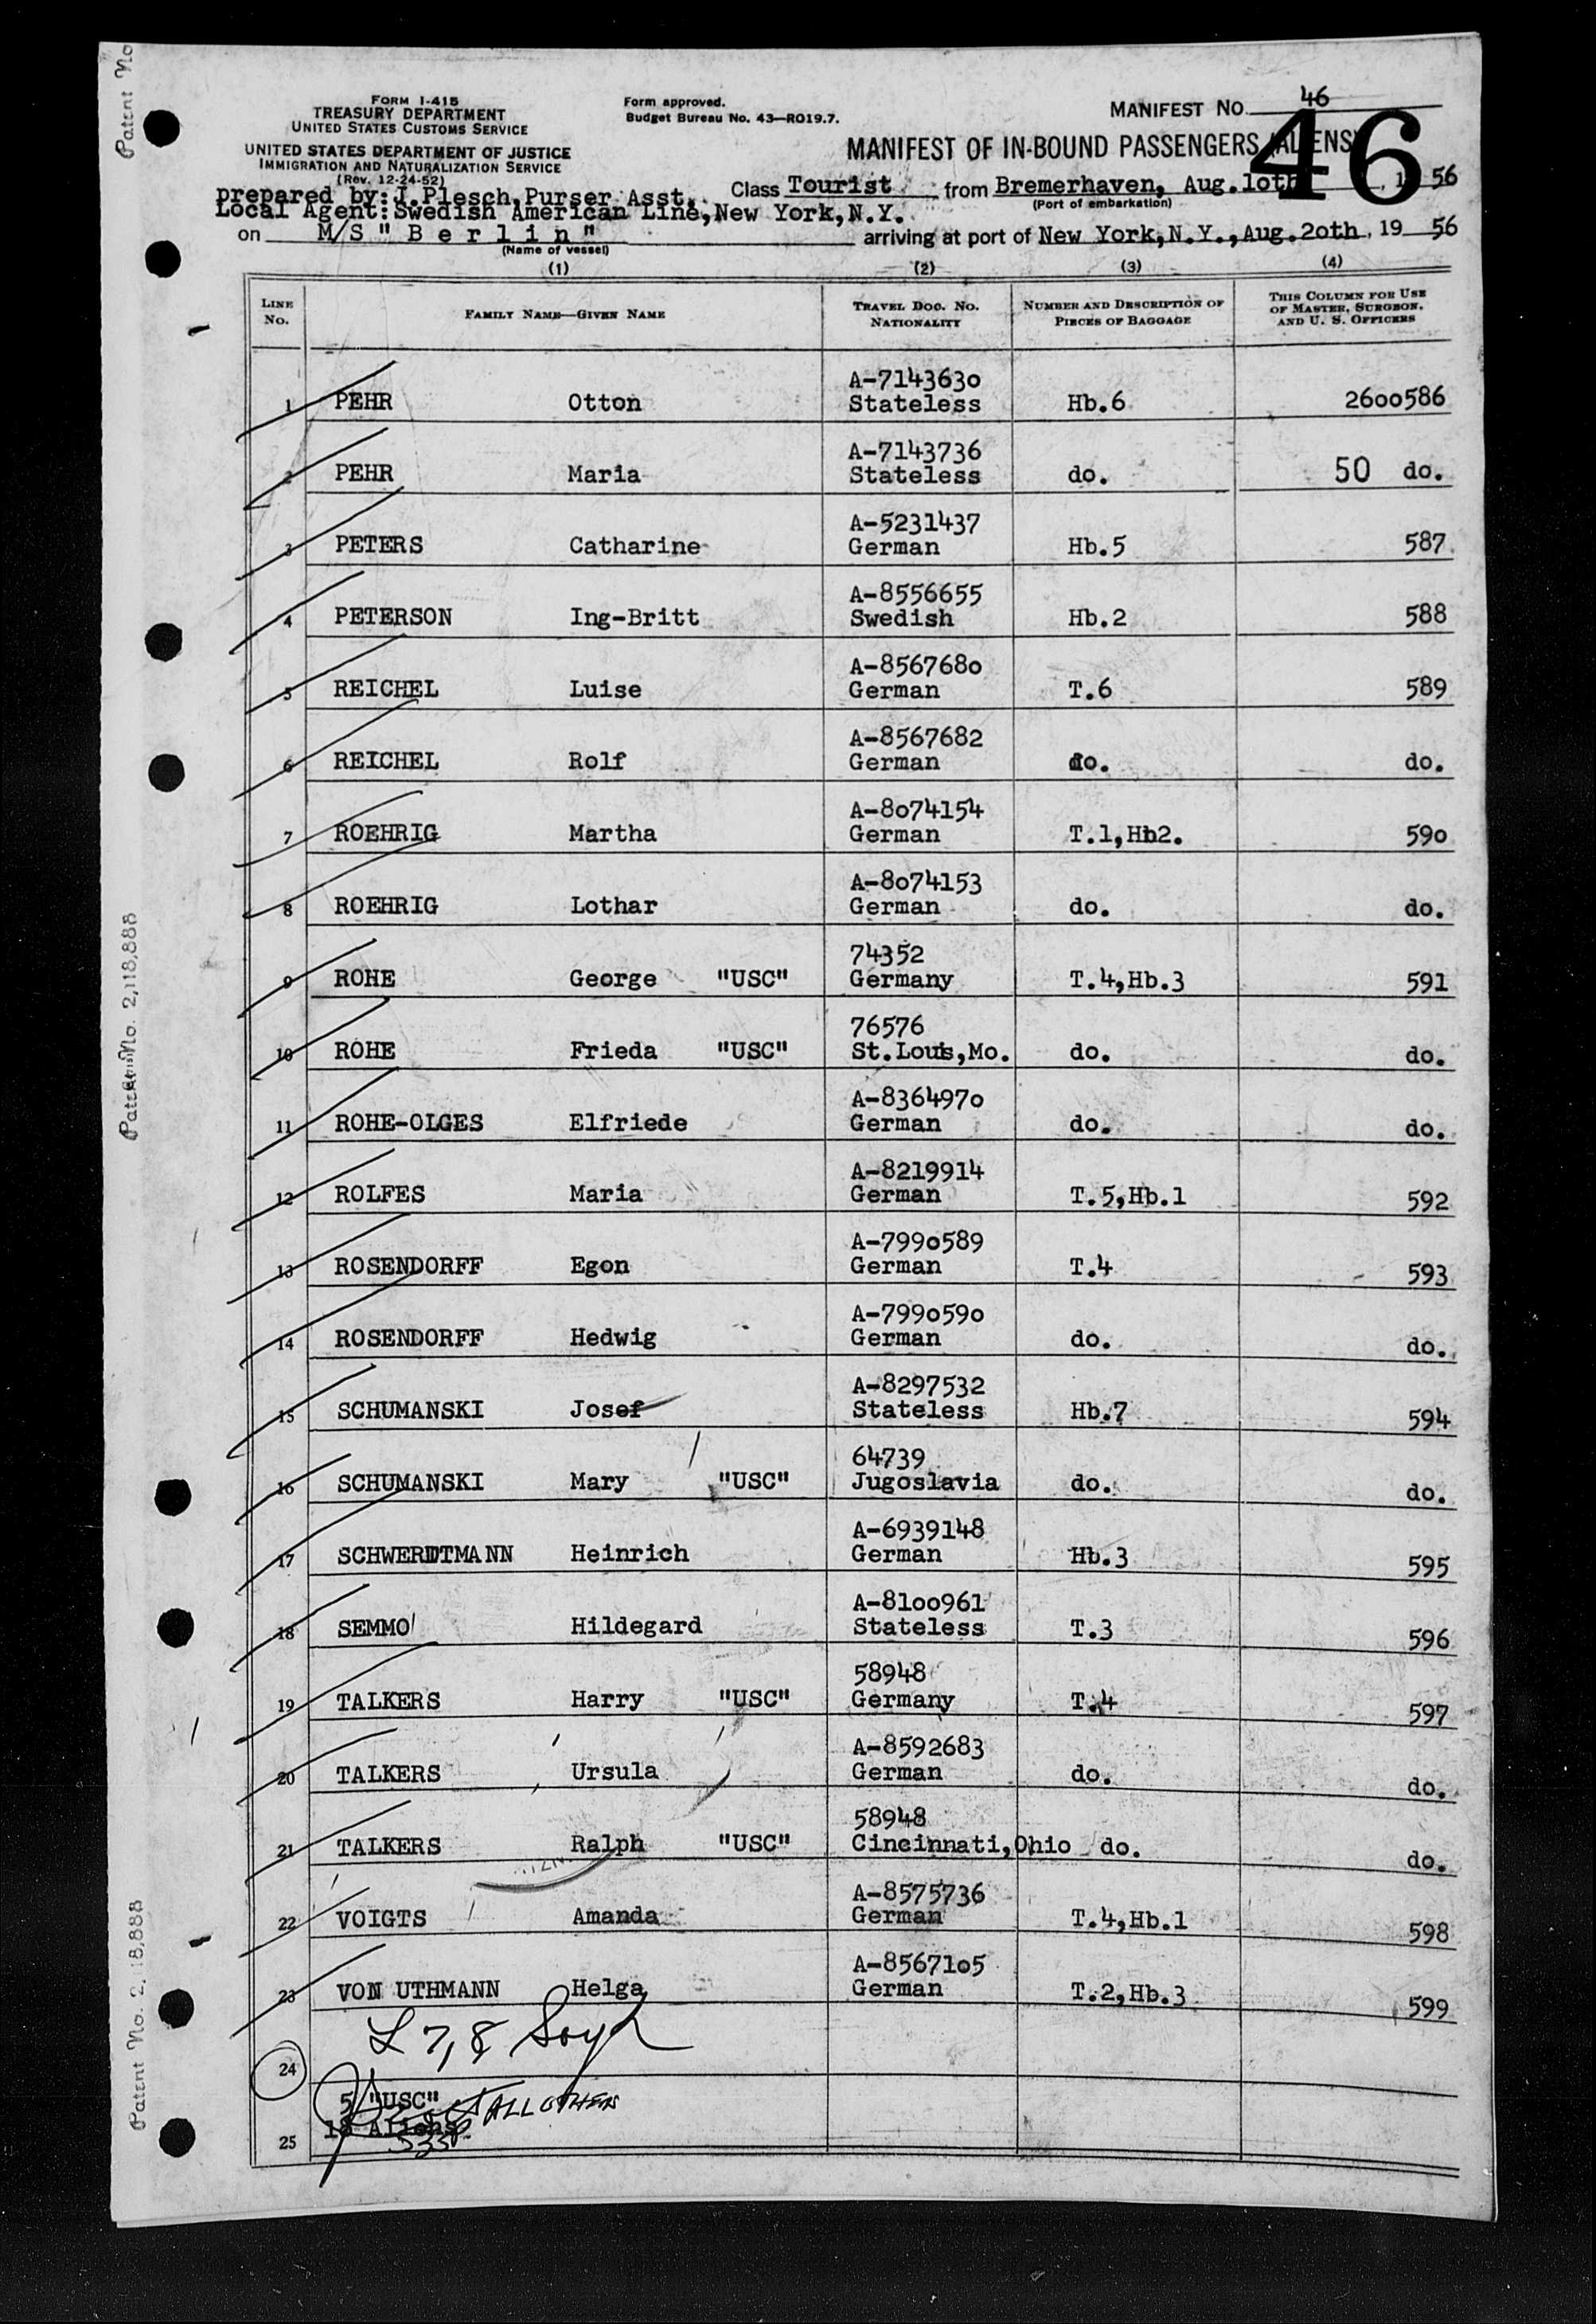 Patent No
FORM I-415
TREASURY DEPARTMENT
UNITED STATES CUSTOMS SERVICE
UNITED STATES DEPARTMENT OF JUSTICE
IMMIGRATION AND NATURALIZATION SERVICE
(Rev. 12-24-52)
Form approved.
Budget Bureau No. 43—RO19.7.
MANIFEST NO. 46
46
MANIFEST OF IN-BOUND PASSENGERS (ALIENS)
prepared by:J.Plesch,Purser Asst. Class Tourist from Bremerhaven, Aug.10th, 1956
(Port of embarkation)
Local Agent:Swedish American Line,New York,N.Y.
on M/S " B e r l i n " arriving at port of New York,N.Y.,Aug.20th, 19 56
(Name of vessel)
(1) (2) (3) (4)
LINE No. FAMILY NAME—GIVEN NAME TRAVEL DOC. NO. NATIONALITY NUMBER AND DESCRIPTION OF PIECES OF BAGGAGE THIS COLUMN FOR USE OF MASTER, SURGEON, AND U. S. OFFICERS
A-7143630
1 PEHR Otton Stateless Hb.6 2600586
A-7143736
2 PEHR Maria Stateless do. 50 do.
A-5231437
3 PETERS Catharine German Hb.5 587
A-8556655
4 PETERSON Ing-Britt Swedish Hb.2 588
A-8567680
5 REICHEL Luise German T.6 589
A-8567682
6 REICHEL Rolf German do. do.
A-8074154
7 ROEHRIG Martha German T.1,Hb2. 590
A-8074153
8 ROEHRIG Lothar German do. do.
74352
9 ROHE George "USC" Germany T.4,Hb.3 591
76576
10 ROHE Frieda "USC" St.Louis,Mo. do. do.
A-8364970
11 ROHE-OLGES Elfriede German do. do.
A-8219914
12 ROLFES Maria German T.5,Hb.1 592
A-7990589
13 ROSENDORFF Egon German T.4 593
A-7990590
14 ROSENDORFF Hedwig German do. do.
A-8297532
15 SCHUMANSKI Josef Stateless Hb.7 594
64739
16 SCHUMANSKI Mary "USC" Jugoslavia do. do.
A-6939148
17 SCHWERDTMANN Heinrich German Hb.3 595
A-8100961
18 SEMMO Hildegard Stateless T.3 596
58948
19 TALKERS Harry "USC" Germany T.4 597
A-8592683
20 TALKERS Ursula German do. do.
58948
21 TALKERS Ralph "USC" Cincinnati,Ohio do. do.
A-8575736
22 VOIGTS Amanda German T.4,Hb.1 598
A-8567105
23 VON UTHMANN Helga German T.2,Hb.3 599
L 7, 8
24
5 "USC"
ALL OTHER
18 Aliens
25
Patent No. 2,118,888
Patent No. 2,118,888